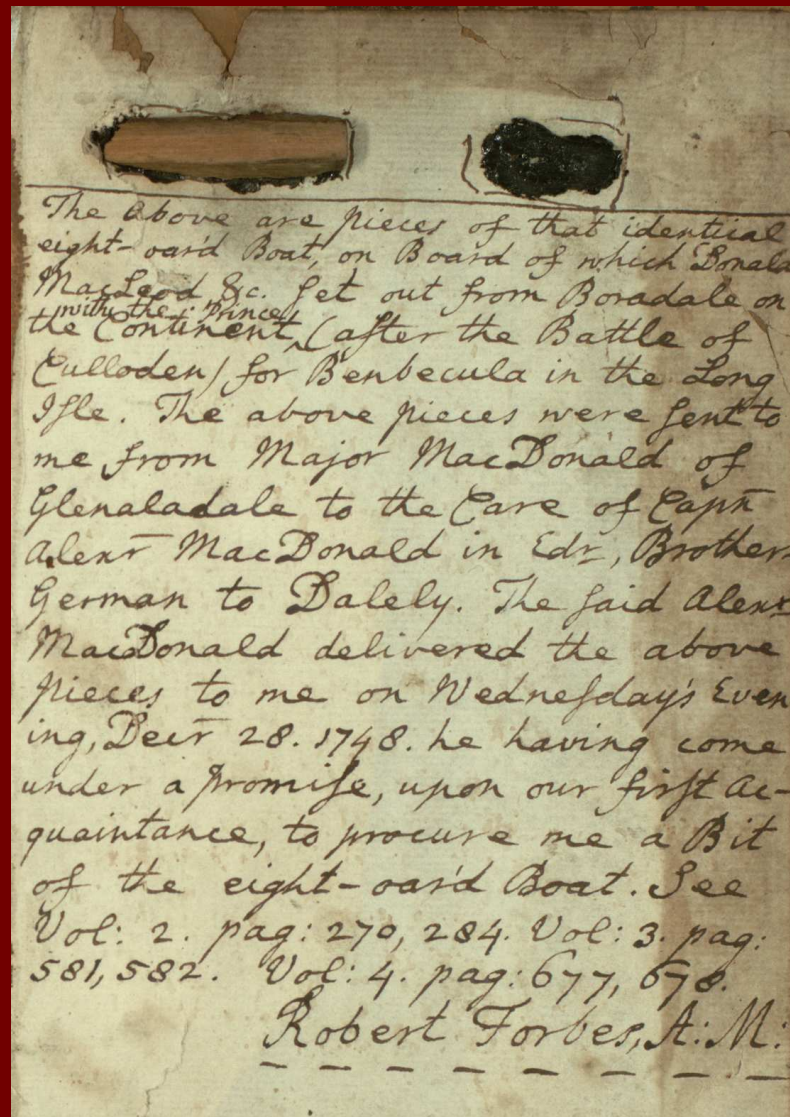 The above are pieces of that identical
eight-oar'd Boat, on Board of which Donald
MacLeod &c. ſet out from Boradale on
with the Prince
the Continent, (after the Battle of
Culloden) for Benbecula in the Long
Iſle. The above pieces were ſent to
me from Major MacDonald of
Glenaladale to the Care of Capn
Alexr MacDonald in Edr, Brother-
German to Dalely. The ſaid Alexr
MacDonald delivered the above
pieces to me on Wedneſday's Even
ing, Decr 28. 1748. he having come
under a promiſe, upon our firſt Ac-
quaintance, to procure me a Bit
of the eight-oar'd Boat. See
Vol: 2. pag: 270, 284. Vol: 3. pag:
581, 582. Vol: 4. pag: 677, 678.
Robert Forbes, A: M: